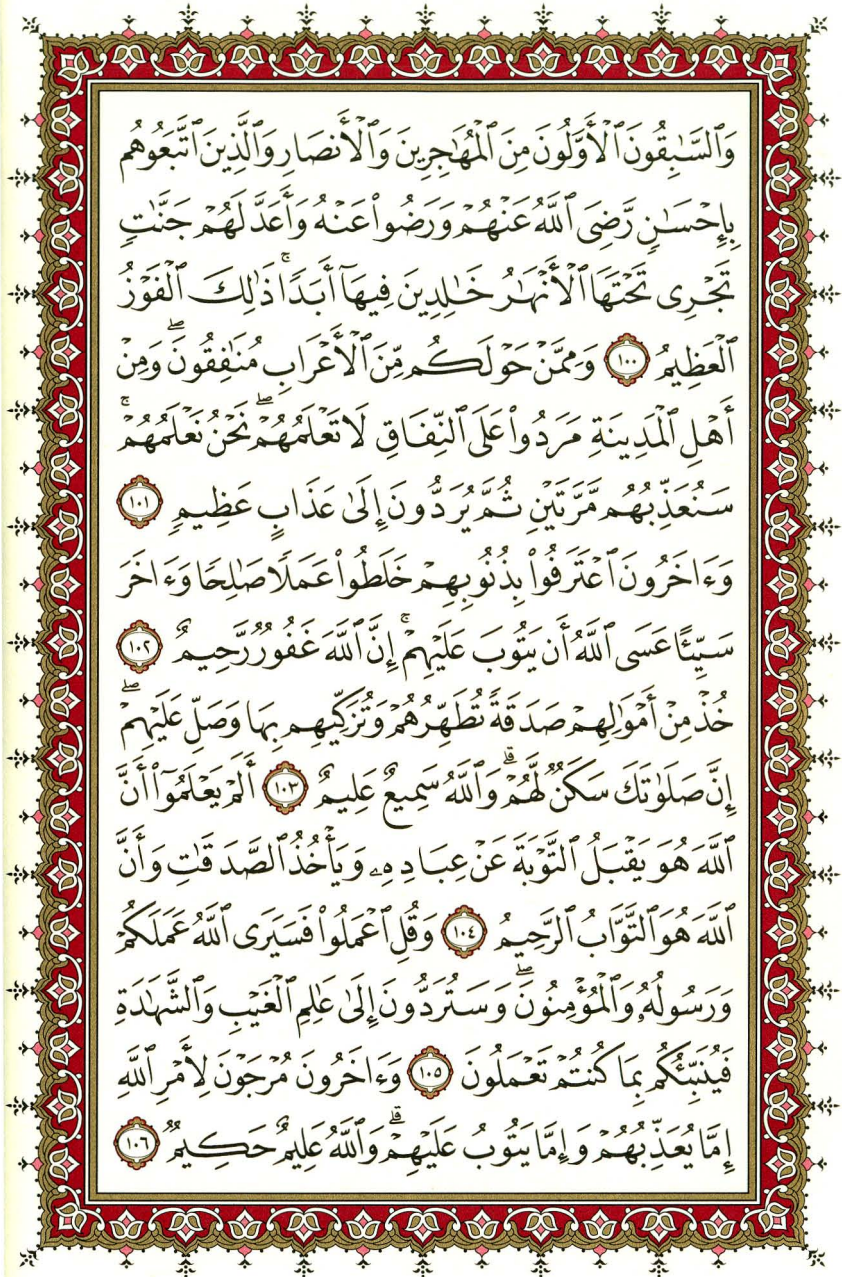 وَٱلسَّـٰبِقُونَ ٱلْأَوَّلُونَ مِنَ ٱلْمُهَـٰجِرِينَ وَٱلْأَنصَارِ وَٱلَّذِينَ ٱتَّبَعُوهُم
بِإِحْسَـٰنٍ رَّضِىَ ٱللَّهُ عَنْهُمْ وَرَضُوا۟ عَنْهُ وَأَعَدَّ لَهُمْ جَنَّـٰتٍ
تَجْرِى تَحْتَهَا ٱلْأَنْهَـٰرُ خَـٰلِدِينَ فِيهَآ أَبَدًا ۚ ذَٰلِكَ ٱلْفَوْزُ
ٱلْعَظِيمُ ١٠٠ وَمِمَّنْ حَوْلَكُم مِّنَ ٱلْأَعْرَابِ مُنَـٰفِقُونَ ۖ وَمِنْ
أَهْلِ ٱلْمَدِينَةِ مَرَدُوا۟ عَلَى ٱلنِّفَاقِ لَا تَعْلَمُهُمْ ۖ نَحْنُ نَعْلَمُهُمْ ۚ
سَنُعَذِّبُهُم مَّرَّتَيْنِ ثُمَّ يُرَدُّونَ إِلَىٰ عَذَابٍ عَظِيمٍ ١٠١
وَءَاخَرُونَ ٱعْتَرَفُوا۟ بِذُنُوبِهِمْ خَلَطُوا۟ عَمَلًا صَـٰلِحًا وَءَاخَرَ
سَيِّئًا عَسَى ٱللَّهُ أَن يَتُوبَ عَلَيْهِمْ ۚ إِنَّ ٱللَّهَ غَفُورٌ رَّحِيمٌ ١٠٢
خُذْ مِنْ أَمْوَٰلِهِمْ صَدَقَةً تُطَهِّرُهُمْ وَتُزَكِّيهِم بِهَا وَصَلِّ عَلَيْهِمْ ۖ
إِنَّ صَلَوٰتَكَ سَكَنٌ لَّهُمْ ۗ وَٱللَّهُ سَمِيعٌ عَلِيمٌ ١٠٣ أَلَمْ يَعْلَمُوٓا۟ أَنَّ
ٱللَّهَ هُوَ يَقْبَلُ ٱلتَّوْبَةَ عَنْ عِبَادِهِۦ وَيَأْخُذُ ٱلصَّدَقَـٰتِ وَأَنَّ
ٱللَّهَ هُوَ ٱلتَّوَّابُ ٱلرَّحِيمُ ١٠٤ وَقُلِ ٱعْمَلُوا۟ فَسَيَرَى ٱللَّهُ عَمَلَكُمْ
وَرَسُولُهُۥ وَٱلْمُؤْمِنُونَ ۖ وَسَتُرَدُّونَ إِلَىٰ عَـٰلِمِ ٱلْغَيْبِ وَٱلشَّهَـٰدَةِ
فَيُنَبِّئُكُم بِمَا كُنتُمْ تَعْمَلُونَ ١٠٥ وَءَاخَرُونَ مُرْجَوْنَ لِأَمْرِ ٱللَّهِ
إِمَّا يُعَذِّبُهُمْ وَإِمَّا يَتُوبُ عَلَيْهِمْ ۗ وَٱللَّهُ عَلِيمٌ حَكِيمٌ ١٠٦